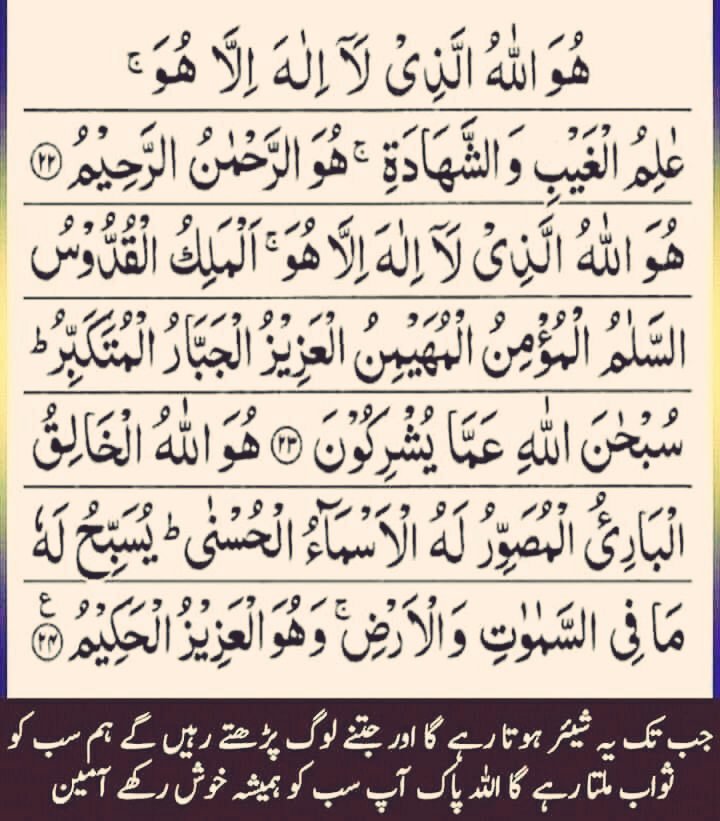 هُوَ اللّٰهُ الَّذِیْ لَاۤ اِلٰهَ اِلَّا هُوَ ۚ
عٰلِمُ الْغَیْبِ وَالشَّهَادَةِ ۚ هُوَ الرَّحْمٰنُ الرَّحِیْمُ ﴿۲۲﴾
هُوَ اللّٰهُ الَّذِیْ لَاۤ اِلٰهَ اِلَّا هُوَ ۚ اَلْمَلِكُ الْقُدُّوْسُ
السَّلٰمُ الْمُؤْمِنُ الْمُهَیْمِنُ الْعَزِیْزُ الْجَبَّارُ الْمُتَكَبِّرُ ؕ
سُبْحٰنَ اللّٰهِ عَمَّا یُشْرِكُوْنَ ﴿۲۳﴾ هُوَ اللّٰهُ الْخَالِقُ
الْبَارِئُ الْمُصَوِّرُ لَهُ الْاَسْمَآءُ الْحُسْنٰی ؕ یُسَبِّحُ لَهٗ
مَا فِی السَّمٰوٰتِ وَالْاَرْضِ ۚ وَهُوَ الْعَزِیْزُ الْحَكِیْمُ ﴿۲۴﴾ ع
جب تک یہ شیئر ہوتا رہے گا اور جتنے لوگ پڑھتے رہیں گے ہم سب کو
ثواب ملتا رہے گا اللہ پاک آپ سب کو ہمیشہ خوش رکھے آمین